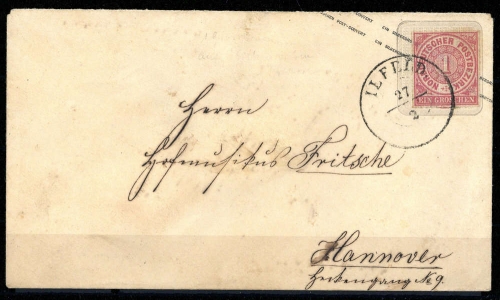 NORDDEUTSCHER POSTBEZIRK
1
EIN GROSCHEN
ILFELD
27
2
Herrn
Hofmusikus Fritsche
Hannover
No 9.